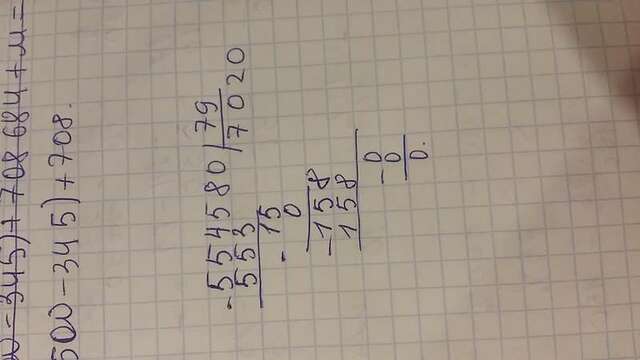 00-345)+708 684+м=
500-345)+708.
-554580|79
553 7020
-15
0
-158
158
-0
0
0.